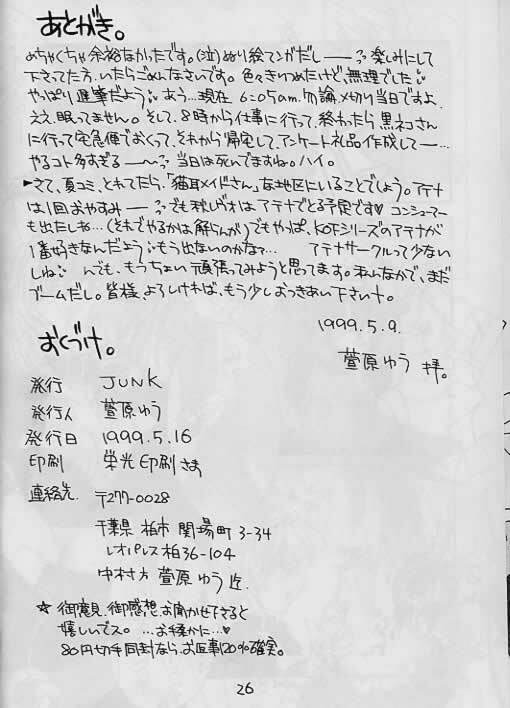 あとがき。
めちゃくちゃ余裕なかったです。(泣)ぬり絵マンガだし―― 楽しみにして
下さってた方、いたらごめんなさいです。色々きりつめたけど、無理でした
やっぱり遅筆だよう あう…現在 6:05am. 勿論〆切り当日ですよ
ええ、眠ってません。そして、8時から仕事に行って、終わったら黒ネコさん
に行って宅急便でおくって、それから帰宅して、アンケート礼品作成して―…
やるコト多すぎる――〜 当日は死んでますね。ハイ。
►さて、夏コミ、とれてたら、「猫耳メイドさん」な地区にいることでしょう。アテナ
は1回おやすみ― でも秋レヴォはアテナでとる予定です♥ コンシューマー
も出たしね…(それでやるかは解らんが)でもやっぱ、KOFシリーズのアテナが
1番好きなんだよう もう出ないのかな?… アテナサークルって少ない
しね んでも、もうちょい頑張ってみようと思ってます。私いなかで、まだ
ブームだし。皆様、よろしければ、もう少しおつきあい下さい
1999.5.9.
萱原ゆう 拝。
おくづけ。
発行 JUNK
発行人 萱原ゆう
発行日 1999.5.16
印刷 栄光印刷さま
連絡先. 〒277-0028
千葉県 柏市 関場町 3-34
レオパレス柏36-104
中村方 萱原ゆう 迄.
☆ 御意見、御感想、お聞かせ下さると
嬉しいでス。…お手柔かに…♥
80円切手同封なら、お返事120%確実。
26